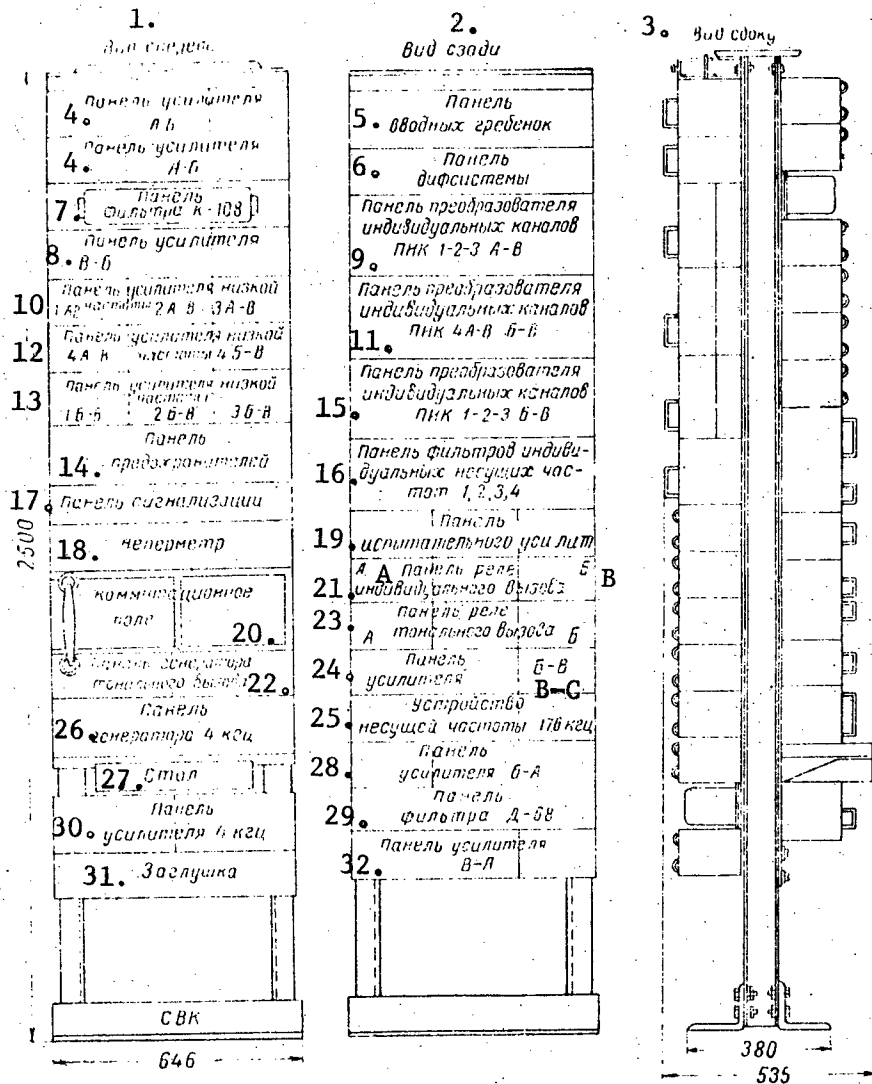 1.
Вид спереди
2.
Вид сзади
3. Вид сбоку
4. Панель усилителя
А-Б
4. Панель усилителя
А-Б
7. Панель
фильтра К-108
8. Панель усилителя
В-Б
10 Панель усилителя низкой
частоты 2А-В 3А-В
12 Панель усилителя низкой
частоты
13 Панель усилителя низкой
частоты
1Б-Б 2Б-В 3Б-В
14. Панель
предохранителей
17. Панель сигнализации
18. неперметр
20. коммутационное
поле
22. Панель генератора
тонального вызова
26. Панель
генератора 4 кгц
27. Стол
30. Панель
усилителя 4 кгц
31. Заглушка
СВК
2500
646
5. Панель
вводных гребенок
6. Панель
дифсистемы
9. Панель преобразователя
индивидуальных каналов
ПНК 1-2-3 А-В
11. Панель преобразователя
индивидуальных каналов
ПНК 4А-В Б-В
15. Панель преобразователя
индивидуальных каналов
ПНК 1-2-3 Б-В
16. Панель фильтров индиви-
дуальных несущих час-
тот 1,2,3,4
19. Панель
испытательного усилит
21. А А Панель реле Б B
индивидуального вызова
23. Панель реле
А тонального вызова Б
24. Панель Б-В
усилителя B-C
25. Устройство
несущей частоты 176 кгц
28. Панель
усилителя Б-А
29. Панель
фильтра Д-68
32. Панель усилителя
В-А
380
535